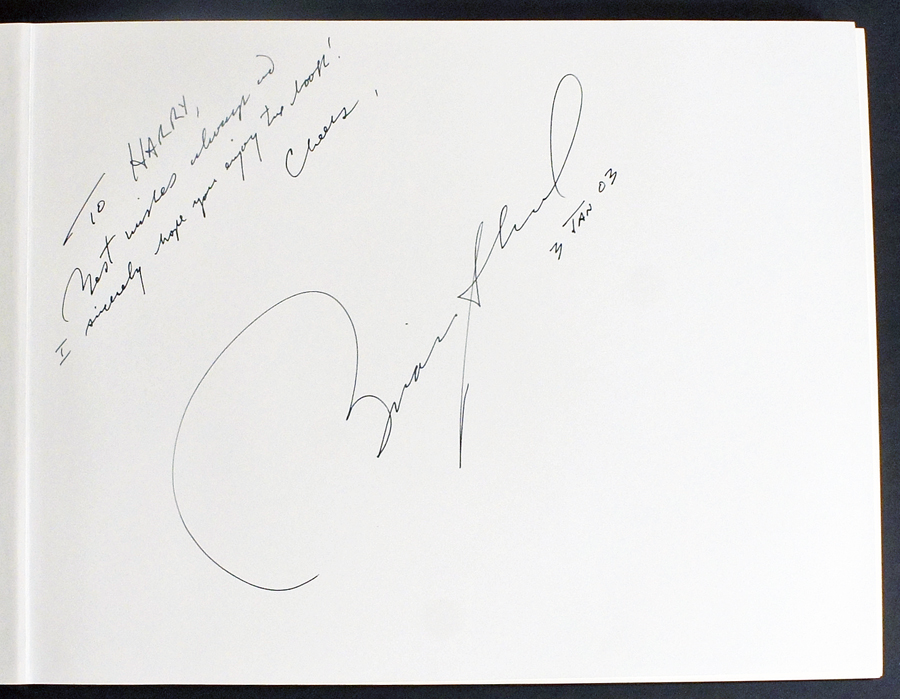 To HARRY,
Best wishes always and
I sincerely hope you enjoy the book!
Cheers,
Brian
3 JAN 03